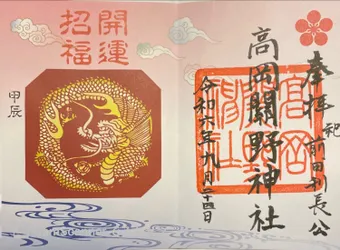 奉拝
祀 前田利長公
高岡關野神社
高岡
關野
神社
令和六年九月二十四日
開運
招福
甲辰